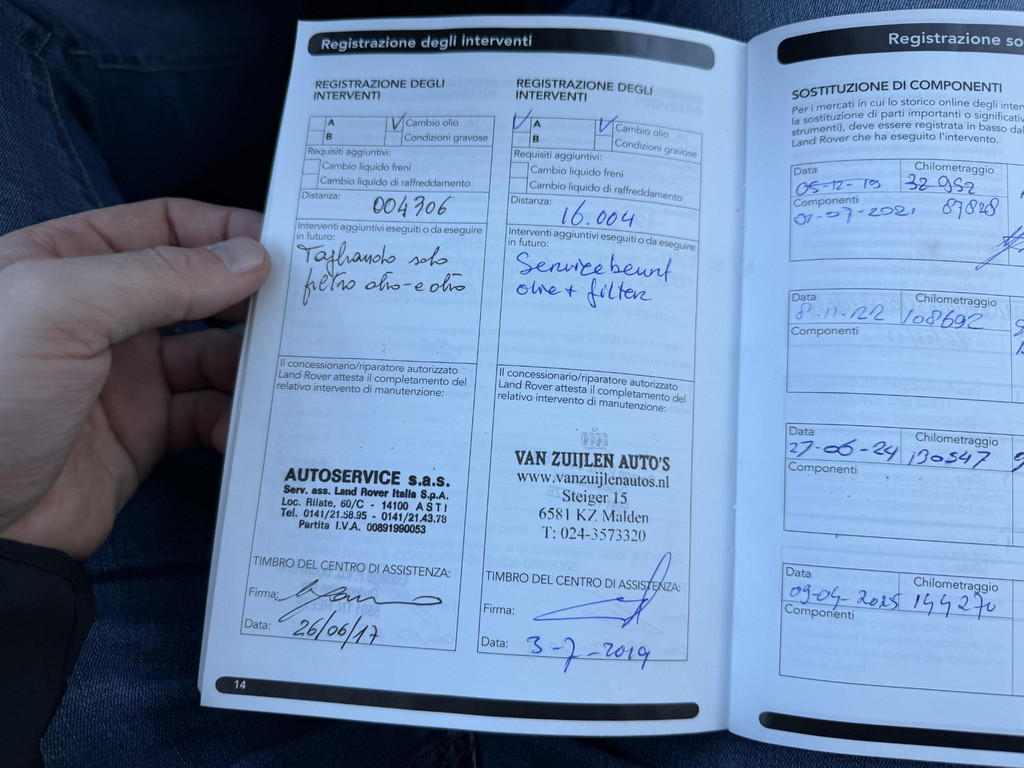 Registrazione degli interventi
REGISTRAZIONE DEGLI
INTERVENTI
A
V Cambio olio
B
Condizioni gravose
Requisiti aggiuntivi:
Cambio liquido freni
Cambio liquido di raffreddamento
Distanza:
004306
Interventi aggiuntivi eseguiti o da eseguire
in futuro:
Tagliando solo
filtro olio-e olio
Il concessionario/riparatore autorizzato
Land Rover attesta il completamento del
relativo intervento di manutenzione:
AUTOSERVICE s.a.s.
Serv. ass. Land Rover Italia S.p.A.
Loc. Rilate, 60/C - 14100 ASTI
Tel. 0141/21.58.95 - 0141/21.43.78
Partita I.V.A. 00891990053
TIMBRO DEL CENTRO DI ASSISTENZA:
Firma:
Data: 26/06/17
14
REGISTRAZIONE DEGLI
INTERVENTI
V A
V Cambio olio
B
Condizioni gravose
Requisiti aggiuntivi:
Cambio liquido freni
Cambio liquido di raffreddamento
Distanza:
16.004
Interventi aggiuntivi eseguiti o da eseguire
in futuro:
Servicebeurt
olie + filter
Il concessionario/riparatore autorizzato
Land Rover attesta il completamento del
relativo intervento di manutenzione:
VAN ZUIJLEN AUTO'S
www.vanzuijlenautos.nl
Steiger 15
6581 KZ Malden
T: 024-3573320
TIMBRO DEL CENTRO DI ASSISTENZA:
Firma:
Data: 3-7-2019
Registrazione so
SOSTITUZIONE DI COMPONENTI
Per i mercati in cui lo storico online degli inter
la sostituzione di parti importanti o significativ
strumenti), deve essere registrata in basso dal
Land Rover che ha eseguito l'intervento.
Data
Chilometraggio
05-12-19 32 952
Componenti
01-07-2021 87828
Data
Chilometraggio
8-11-22 108692
Componenti
Data
Chilometraggio
27-06-24 130547
Componenti
Data
Chilometraggio
09-04-2025 144270
Componenti